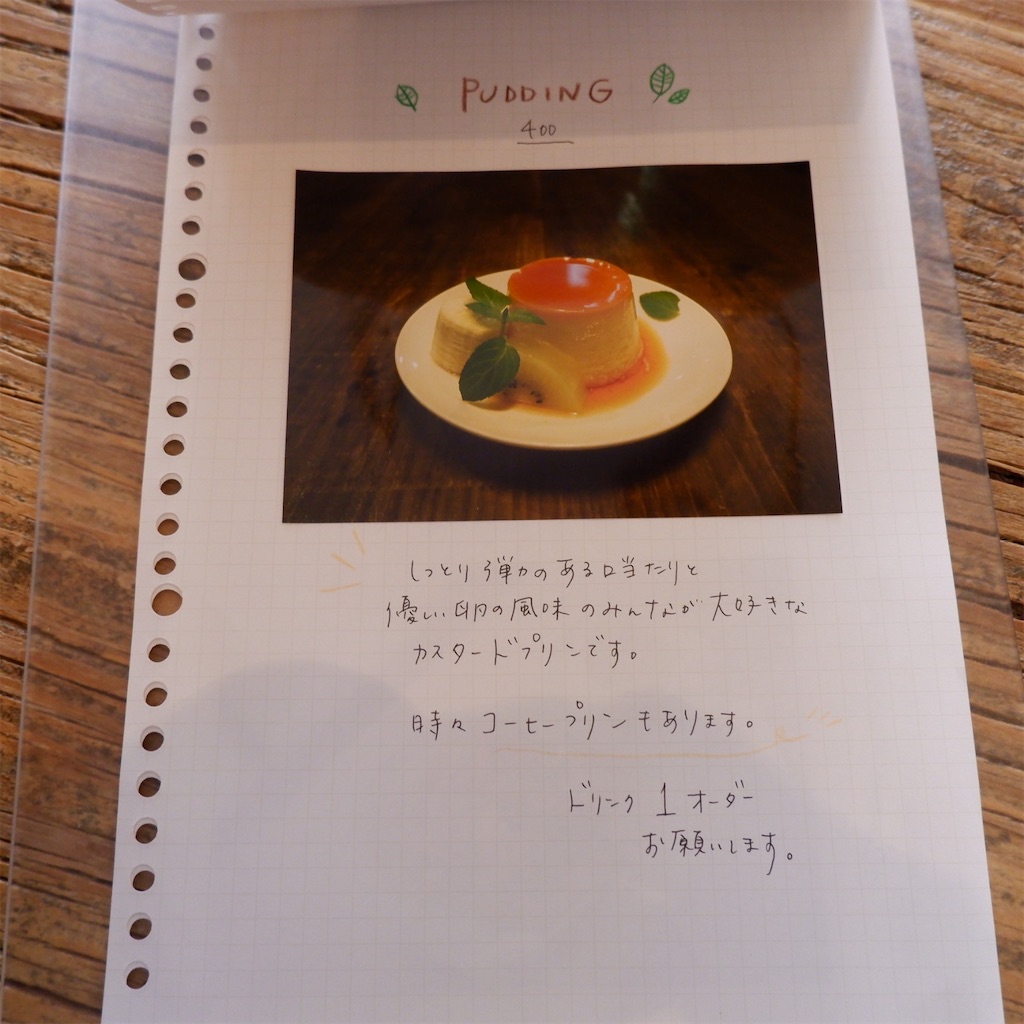 PUDDING
400
しっとり弾力のある口当たりと
優しい卵の風味のみんなが大好きな
カスタードプリンです。
時々コーヒープリンもあります。
ドリンク1オーダー
お願いします。